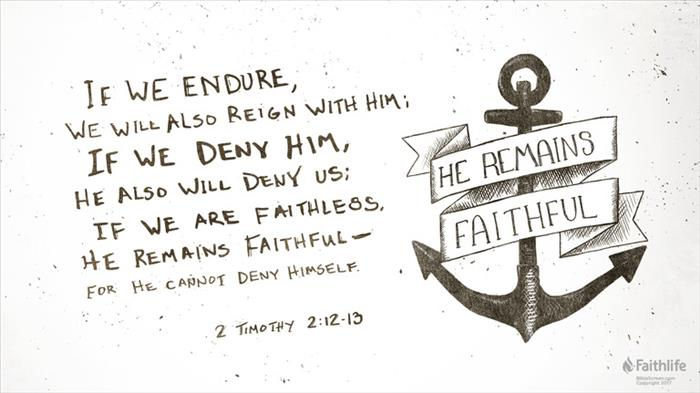 IF WE ENDURE,
WE WILL ALSO REIGN WITH HIM;
IF WE DENY HIM,
HE ALSO WILL DENY US;
IF WE ARE FAITHLESS,
HE REMAINS FAITHFUL—
FOR HE CANNOT DENY HIMSELF.
2 TIMOTHY 2:12-13
HE REMAINS
FAITHFUL
Faithlife
BibleScreen.com
Copyright 2017